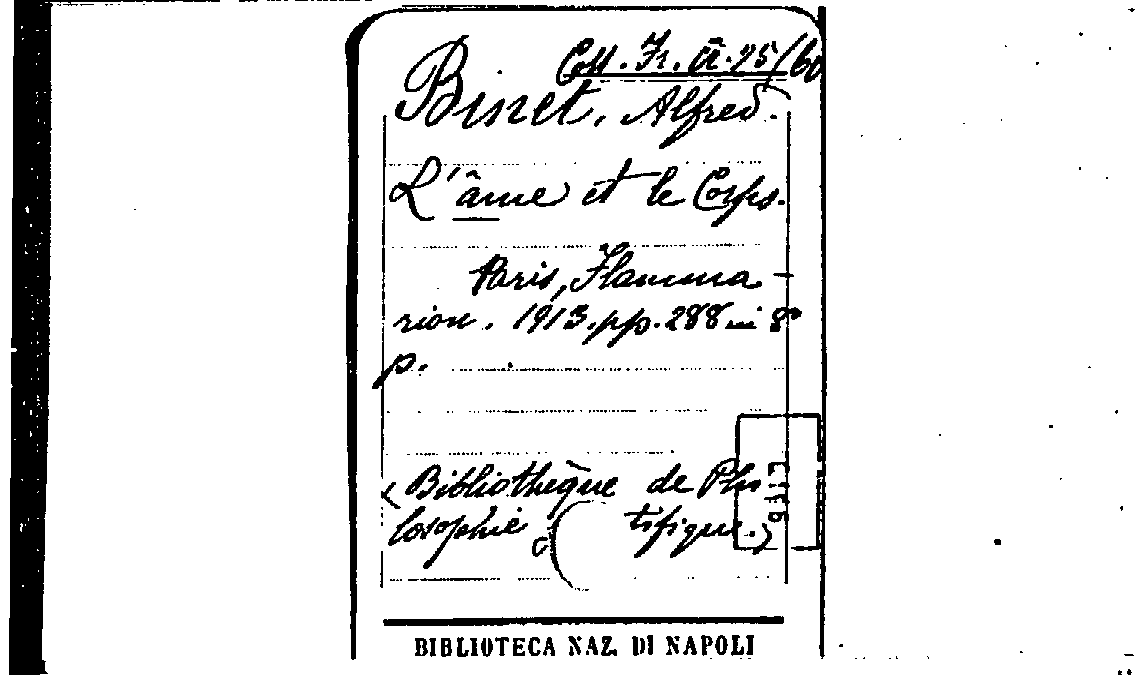 Coll. Fr. A. 25/60
Binet, Alfred.
L'âme et le Corps.
Paris, Flamma-
rion. 1913. pp. 288 in 8º
p.
(Bibliothèque de Phi
losophie tifique.)
BIBLIOTECA NAZ. DI NAPOLI